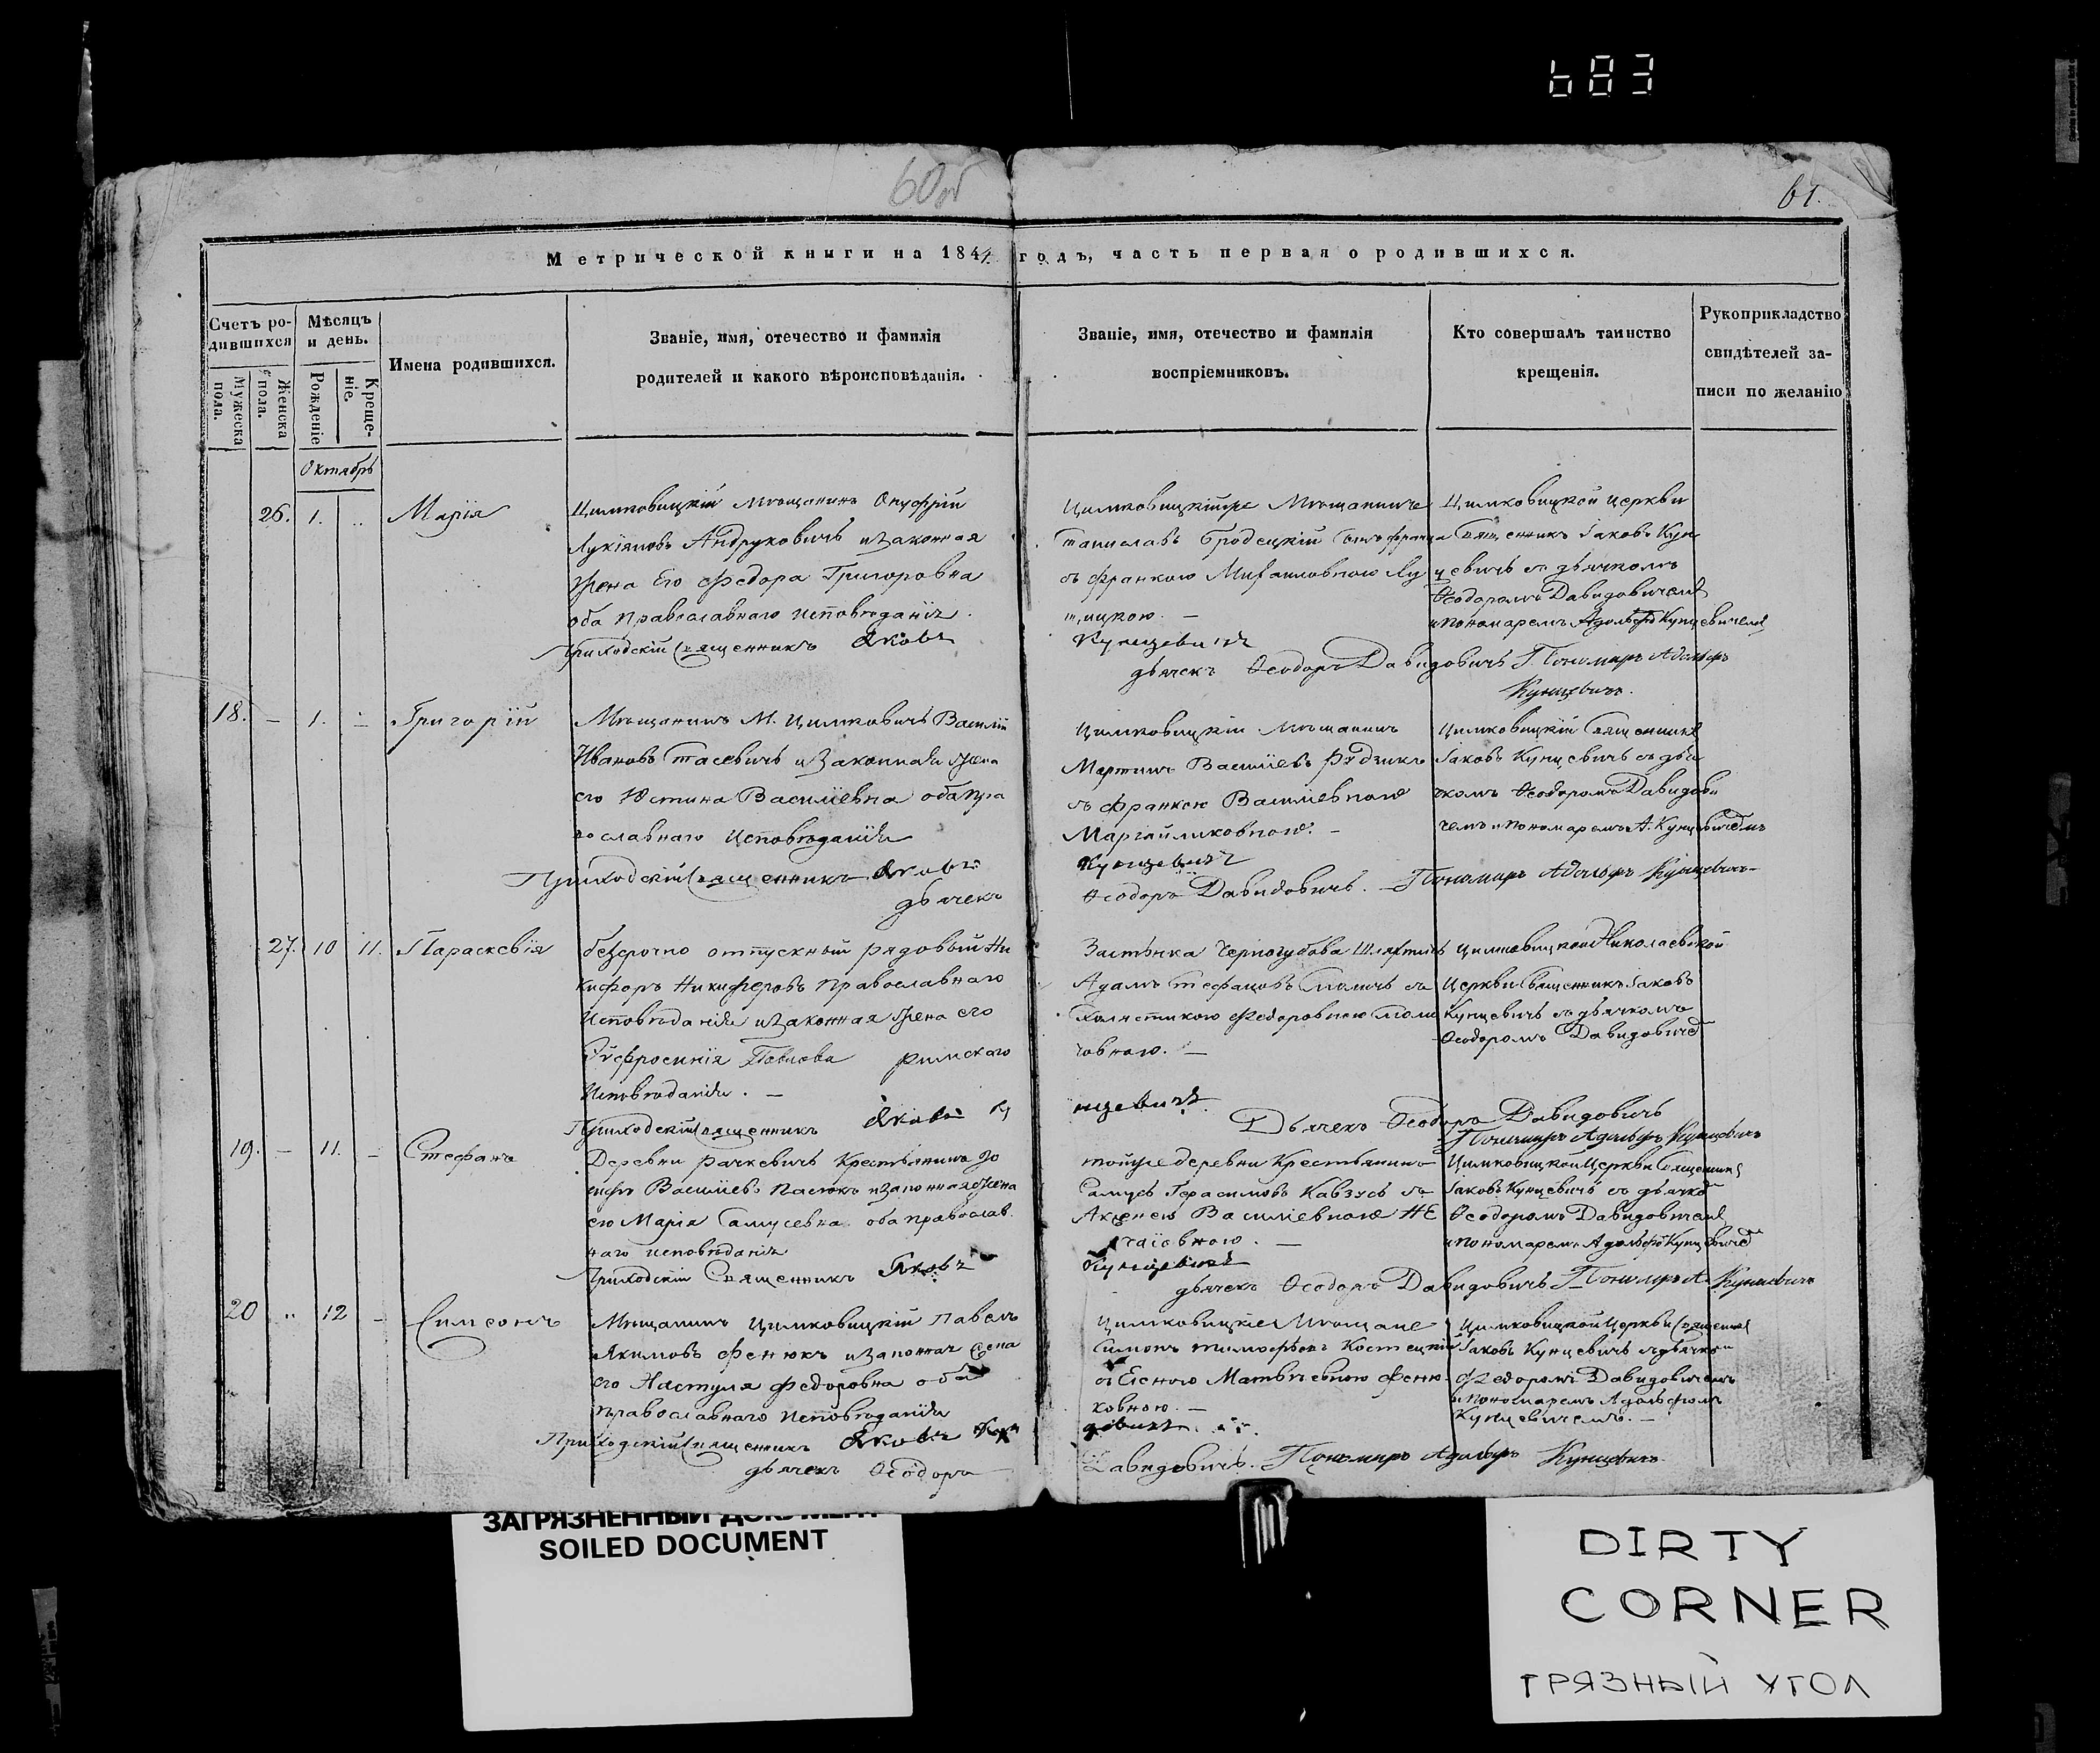 683
60об
61.
Метрической книги на 1844 годъ, часть первая о родившихся.
Счетъ родившихся
Мужеска пола.
Женска пола.
Мѣсяцъ и день.
Рожденіе
Крещеніе.
Имена родившихся.
Званіе, имя, отечество и фамилія
родителей и какого вѣроисповѣданія.
Званіе, имя, отечество и фамилія
воспріемниковъ.
Кто совершалъ таинство
крещенія.
Рукоприкладство
свидѣтелей за-
писи по желанію
Октябрь
26. 1. Марія
Цимковицкій мѣщанинъ Онуфрій
Лукіяновъ Андруковичъ и законная
жена Его Федора Григоровна
оба православнаго исповѣданія.
Приходскій Священникъ Яковъ
Цимковицкійже Мѣщанинъ
Станиславъ Бродецкій
съ Франкою Михаиловною
Кунцевичъ
Цимковицкой церкви
Священникъ Іаковъ Кун
цевичъ съ дьячкомъ
Ѳеодоромъ Давидовичемъ
и пономаремъ Адольфо Кунцевичемъ
дьячекъ Ѳеодоръ Давидовичъ Пономарь Адольфъ
Кунцевичъ.
18. – 1. – Григорій
Мѣщанинъ М. Цимковичъ Василій
Ивановъ Стасевичъ и законная жена
его Юстина Василіевна оба пра
вославнаго Исповѣданія
Приходскій Священникъ Яковъ
дьячекъ
Цимковицкій мѣщанинъ
Мартинъ Василіевъ Рудзикъ
съ Франкою Василіевною
Кунцевичъ
Ѳеодоръ Давидовичъ. Пономарь Адольфъ Кунцевичъ
Цимковицкій Священникъ
Іаковъ Кунцевичъ съ дья
чкомъ Ѳеодоромъ Давидови
чемъ и пономаремъ А. Кунцевичемъ
27. 10 11. Параскевія
безсрочно отпускный рядовый Ни
кифоръ Никифоровъ православнаго
Исповѣданія и законная жена его
Эуфросинія Павлова римскаго
Исповѣданія. –
Приходскій Священникъ Яковъ Ку
Застѣнка Черногубова Шляхтичъ
Адамъ Стефановъ
Федоровною
нцевичъ.
Цимковицкой Николаевской
Церкви Священникъ Іаковъ
Кунцевичъ съ дьячкомъ
Ѳеодоромъ Давидовичемъ
Дьячекъ Ѳеодоръ Давидовичъ
Пономарь Адольфъ Кунцевичъ
19. – 11. – Стефанъ
Деревни Рачкевичъ Крестьянинъ Іо
сифъ Василіевъ Пасюкъ и законная жена
его Марія Самусевна оба православ
наго исповѣданія
Приходскій Священникъ Яковъ
тойже деревни Крестьянинъ
Самусь Герасимовъ Кавзусь съ
Василіевною
Кунцевичъ
Цимковицкой Церкви Священникъ
Іаковъ Кунцевичъ съ дьячко
Ѳеодоромъ Давидовичемъ
и пономаремъ Адольфо Кунцевиче
дьячекъ Ѳеодоръ Давидовичъ Пономарь А. Кунцевичъ
20 „ 12 – Симеонъ
Мѣщанинъ Цимковицкій Павелъ
Якимовъ Фенюкъ и законная жена
его Настуля Федоровна оба
православнаго исповѣданія
Приходскій Священникъ Яковъ
дьячекъ Ѳеодоръ
Цимковицкіе Мѣщане
Симонъ Тимофѣевъ Костецкій
Матвѣевною Феню
ковною. –
Давидовичъ. Пономарь Адольфъ Кунцевичъ
Цимковицкой Церкви Священникъ
Іаковъ Кунцевичъ съ дьячкомъ
Федоромъ Давидовичемъ
и пономаремъ Адольфомъ
Кунцевичемъ. –
ЗАГРЯЗНЕННЫЙ ДОКУМЕНТ
SOILED DOCUMENT
DIRTY
CORNER
ГРЯЗНЫЙ УГОЛ